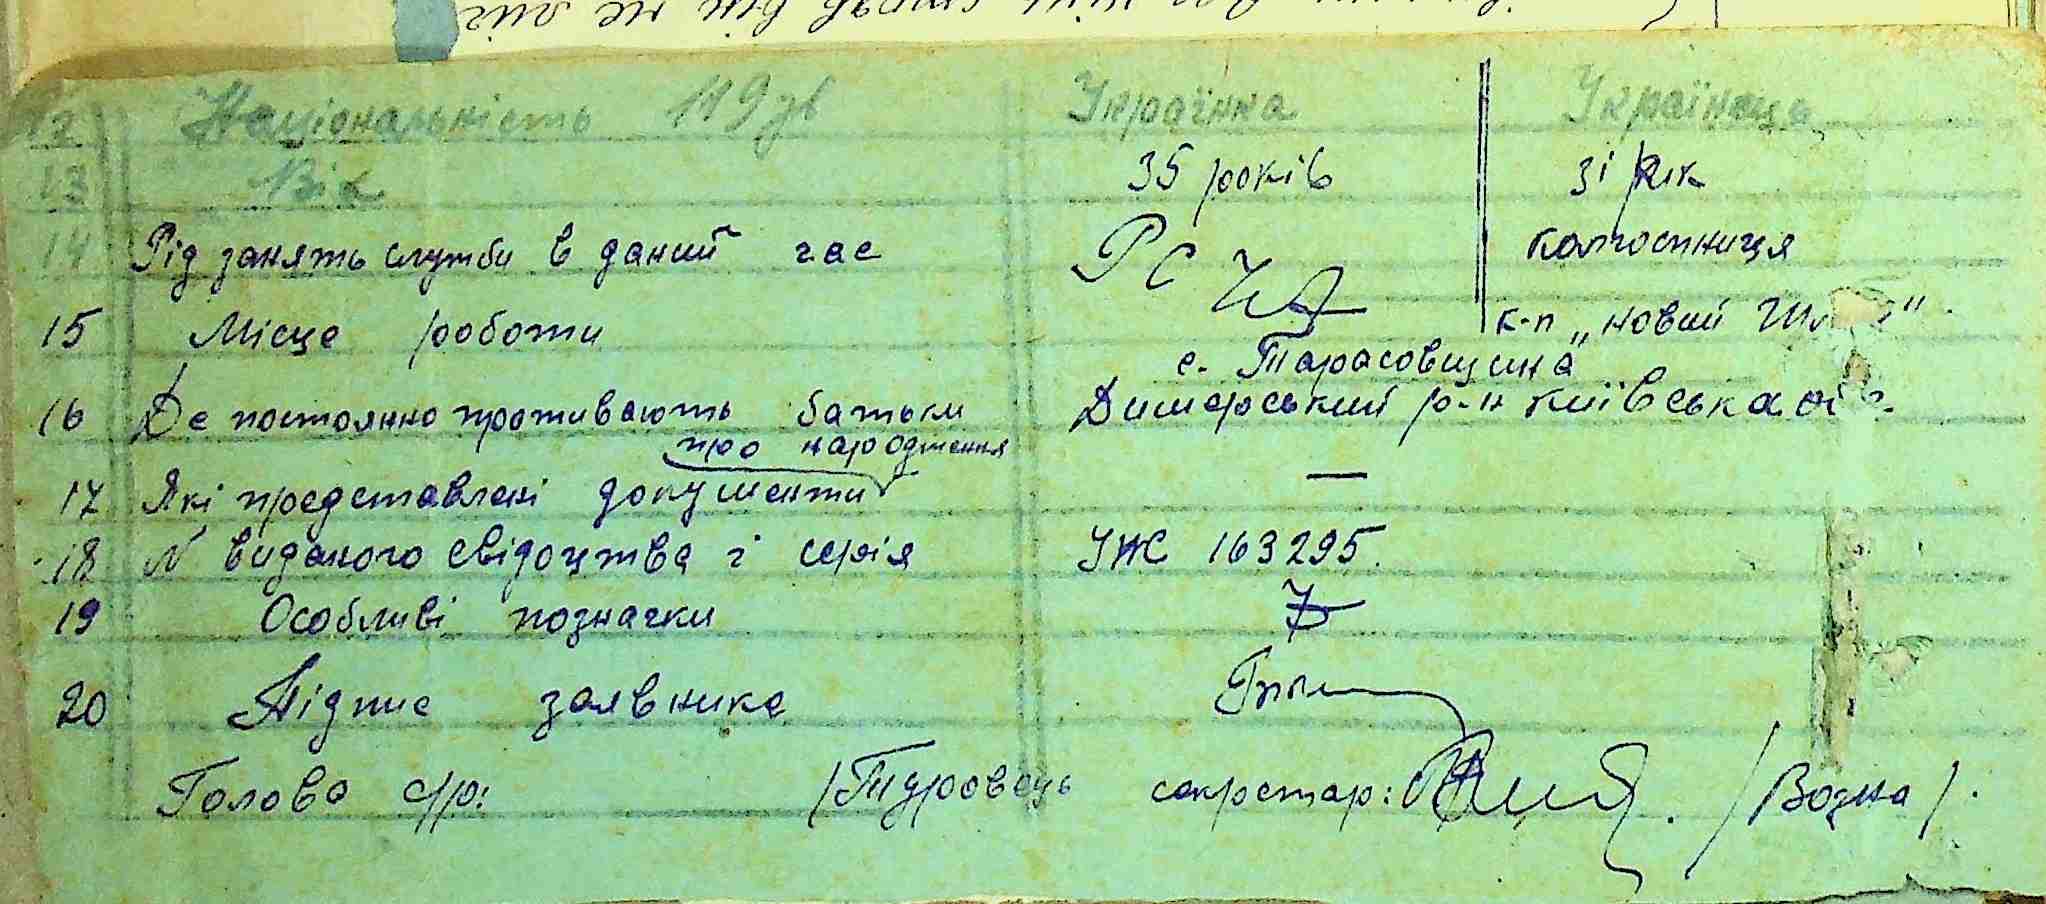 він не
12 Національність 119 зв Українка Українець
13 Вік 35 років 31 рік
14 Рід занять служби в даний час РС колгоспниця
15 Місце роботи к-п „новий
с. Тарасовщина
16 Де постоянно проживають батьки Димерський р-н київська
про народження
17 Які представлені документи —
18 N виданого свідоцтва і серія УЖ 163295.
19 Особливі позначки
20 Підпис заявника
Голова с/р: /Туровець секретар: /Возна/.